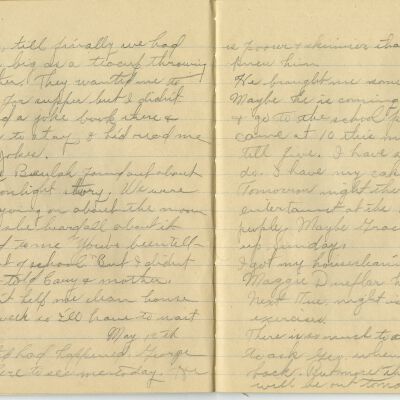 till finally we had
big as a teacup throwing
They wanted me to
for supper but I didn't
a joke book there &
to stay & hid read me
jokes.
Beulah found out about
story. We were
on about the moon
heard all about it
to me "You've been tell-
of school" But I didn't
told Cary & mother.
help me clean house
week so I'll have to wait
May 15th
had happened. George
here to see me today. He
is poorer & skinnier than
knew him
He brought me some
Maybe he is coming
& go to the school
came at 10 this
till five. I have
do. I have my
Tomorrow night the
entertainment at the
purply. Maybe Grac
up Sunday.
I got my housecleanin
Maggie
Next Tue. night is
exercises.
There is so much to
to ask Geo. when
back. But more th
will be out tomo